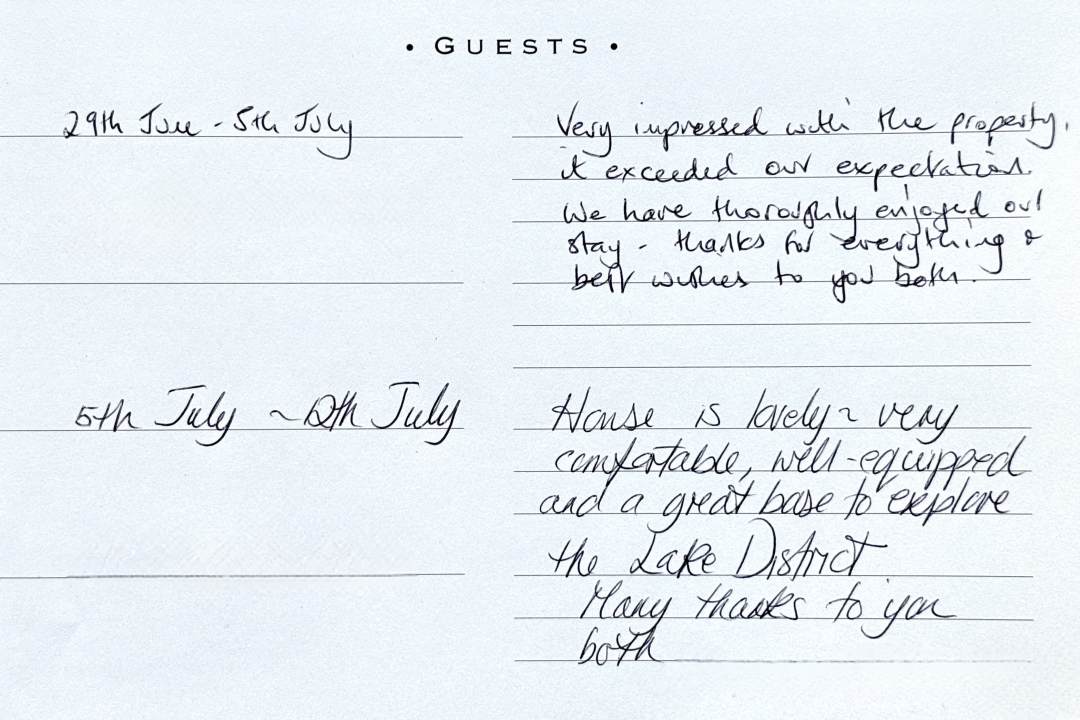 • GUESTS •
29th June - 5th July
Very impressed with the property,
it exceeded our expectation.
We have thoroughly enjoyed our
stay - thanks for everything &
best wishes to you both.
5th July ~ 12th July
House is lovely ~ very
comfortable, well-equipped
and a great base to explore
the Lake District
Many thanks to you
both